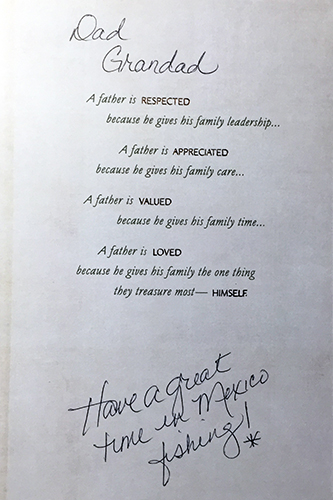 Dad
Grandad
A father is RESPECTED
because he gives his family leadership...
A father is APPRECIATED
because he gives his family care...
A father is VALUED
because he gives his family time...
A father is LOVED
because he gives his family the one thing
they treasure most— HIMSELF.
Have a great
time in Mexico
fishing! *